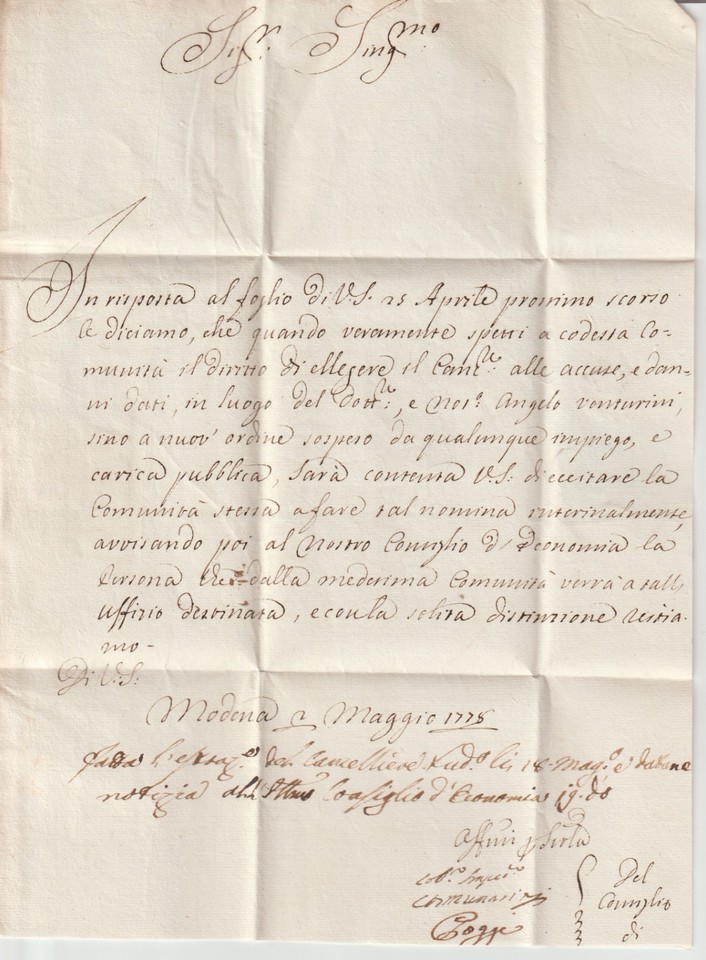 Sig.r Sing.mo
In risposta al foglio di V.S. 25 Aprile prossimo scorso
le diciamo, che quando veramente spetti a codesta Co-
munità il diritto di ellegere il Canc.re alle accuse, e dan-
ni dati, in luogo del Dott.re, e Not.o Angelo Venturini,
sino a nuov' ordine sospeso da qualunque impiego, e
carica pubblica, sarà contenta V.S. di eccitare la
Comunità stessa a fare tal nomina interinalmente,
avvisando poi al Nostro Consiglio d' Economia la
Persona che dalla medesima Comunità verrà a tall'
uffizio destinata, e con la solita distinzione restia-
mo-
Di V.S.
Modena 2 Maggio 1778
fatta l' del Cancelliere li 18. Mag.o e datane
notizia all' Consiglio d' Economia 19. do
Affmi p Servla
Del
Consiglio
di
Poggi